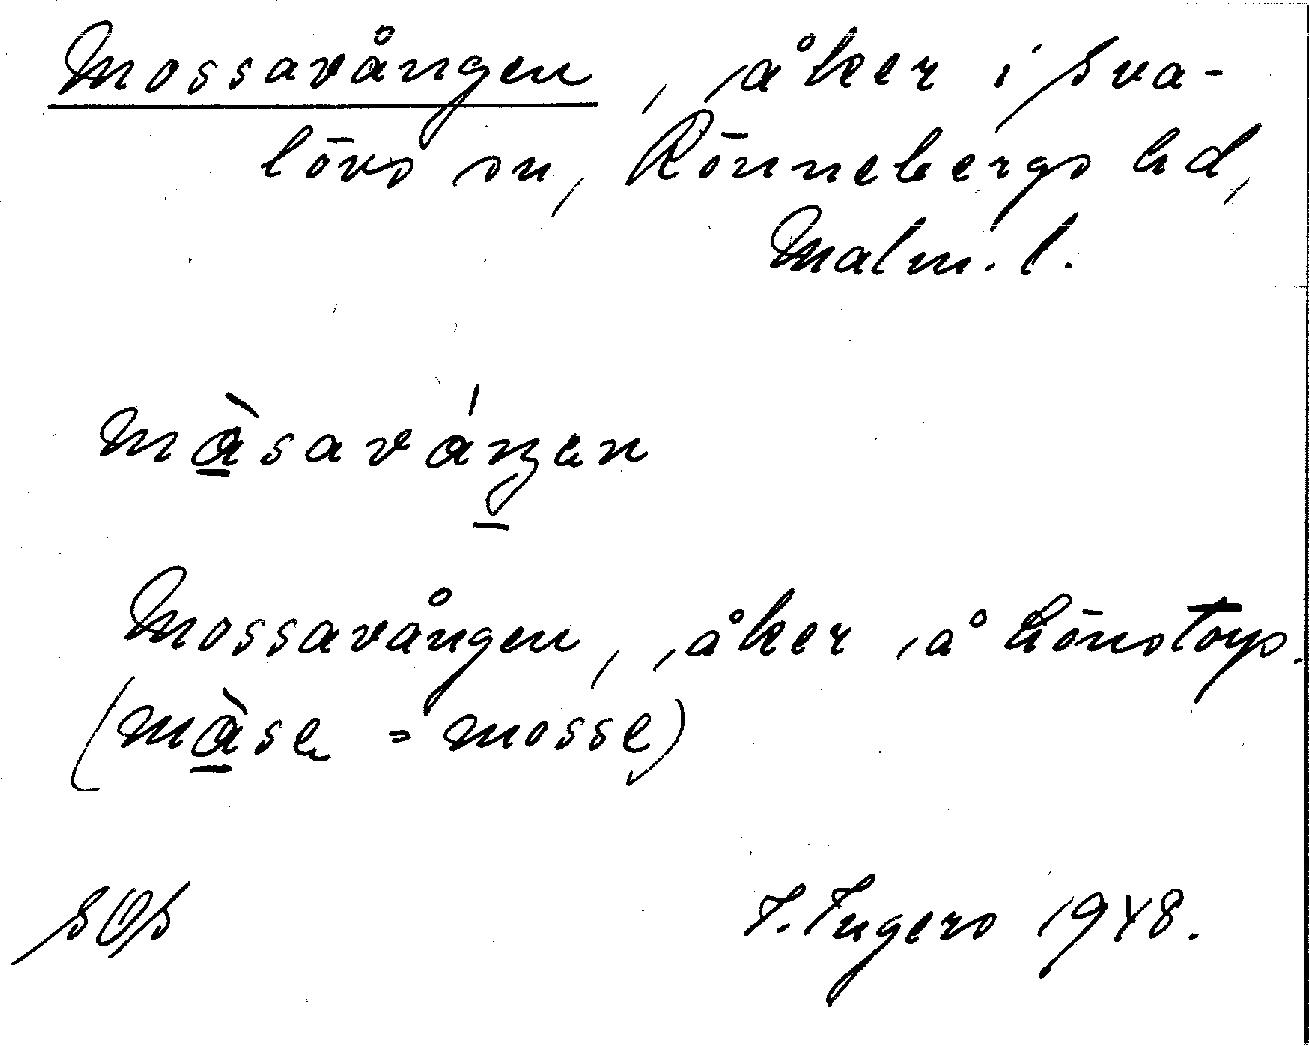 Mossavången, åker i Sva-
lövs sn, Rönnebergs hd,
Malm. l.
màsavánen
Mossavången, åker å Lönstorp.
(màse = mosse)
SOS
I. Ingers 1948.